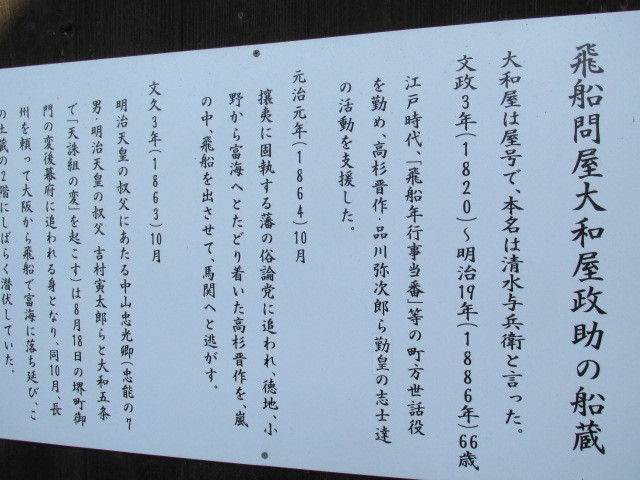 飛船問屋大和屋政助の船蔵
大和屋は屋号で、本名は清水与兵衛と言った。
文政3年(1820)～明治19年(1886年)66歳
江戸時代、「飛船年行事当番」等の町方世話役
を勤め、高杉晋作・品川弥次郎ら勤皇の志士達
の活動を支援した。
元治元年(1864)10月
攘夷に固執する藩の俗論党に追われ、徳地、小
野から富海へとたどり着いた高杉晋作を、嵐
の中、飛船を出させて、馬関へと逃がす。
文久3年(1863)10月
明治天皇の叔父にあたる中山忠光卿(忠能の7
男・明治天皇の叔父 吉村寅太郎らと大和五条
で「天誅組の変」を起こす)は8月18日の堺町御
門の変後幕府に追われる身となり、同10月、長
州を頼って大阪から飛船で富海に落ち延び、こ
の土蔵の2階にしばらく潜伏していた。